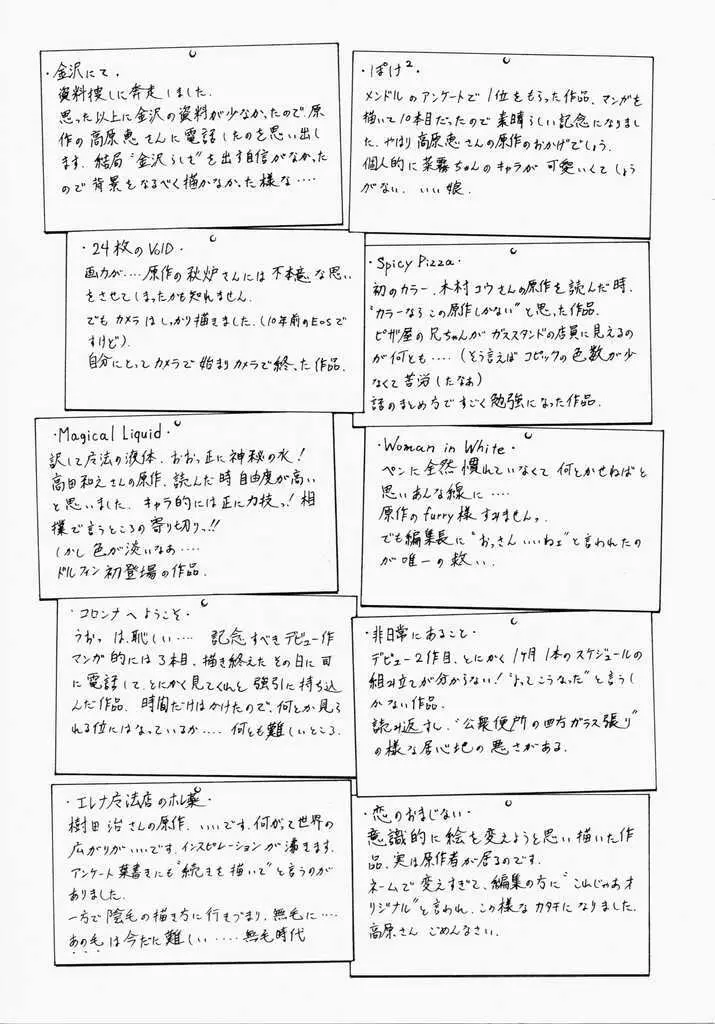 ・金沢にて・
資料捜しに奔走しました.
思った以上に金沢の資料が少なかったので、原
作の高原恵さんに電話したのを思い出し
ます. 結局"金沢らしさ"を出す自信がなかった
ので背景をなるべく描かなかった様な‥‥
・ぽけ²・
メンドルのアンケートで1位をもらった作品、マンガを
描いて10本目だったので素晴らしい記念になりまし
た. やはり高原恵さんの原作のおかげでしょう.
個人的に菜霧ちゃんのキャラが可愛いくてしょう
がない. いい娘.
・24枚のVOID・
画力が‥‥原作の秋炉さんには不本意な思い
をさせてしまったかも知れません.
でもカメラはしっかり描きました.(10年前のEOSで
すけど)
自分にとってカメラで始まりカメラで終った作品.
・Spicy Pizza・
初のカラー、木村コウさんの原作を読んだ時、
"カラーならこの原作しかない"と思った作品.
ピザ屋の兄ちゃんがガススタンドの店員に見えるの
が何とも‥‥(そう言えばコピックの色数が少
なくて苦労したなぁ)
話のまとめ方ですごく勉強になった作品.
・Magical Liquid・
訳して魔法の液体. おおっ正に神秘の水!
高田和えさんの原作. 読んだ時自由度が高い
と思いました. キャラ的には正に力技っ!相
撲で言うところの寄り切りっ!!
しかし色が淡いなぁ‥‥
ドルフィン初登場の作品.
・Woman in White・
ペンに全然慣れていなくて何とかせねばと
思いあんな線に‥‥
原作のfurry様すみませんっ.
でも編集長に"おっさんいいねェ"と言われたの
が唯一の救い.
・コロンナへようこそ・
うおっ は、恥しい‥‥ 記念すべきデビュー作
マンガ的には3本目. 描き終えたその日に司
に電話して、とにかく見てくれと強引に持ち込
んだ作品. 時間だけはかけたので、何とか見ら
れる位にはなっているか‥‥何とも難しいところ.
・非日常にあること・
デビュー2作目、とにかく1ヶ月1本のスケジュールの
組み立てが分からない!"よってこうなった"と言うし
かない作品.
読み返すし、"公衆便所の四方ガラス張り"
の様な居心地の悪さがある.
・エレナ魔法店のホレ薬・
樹田治さんの原作. いいです. 何がって世界の
広がりがいいです. インスピレーションが湧きます.
アンケート葉書きにも"続きを描いて"と言うのが
ありました.
一方で陰毛の描き方に行きづまり、無毛に‥‥
あの毛は今だに難しい‥‥無毛時代
・恋のおまじない・
意識的に絵を変えようと思い描いた作
品. 実は原作者が居るのです.
ネームで変えすぎて、編集の方に"これじゃあオ
リジナル"と言われ、この様なカタチになりました.
高原さん ごめんなさい.